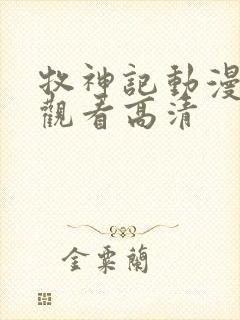 牧神記動漫
觀看高清
金粟蘭